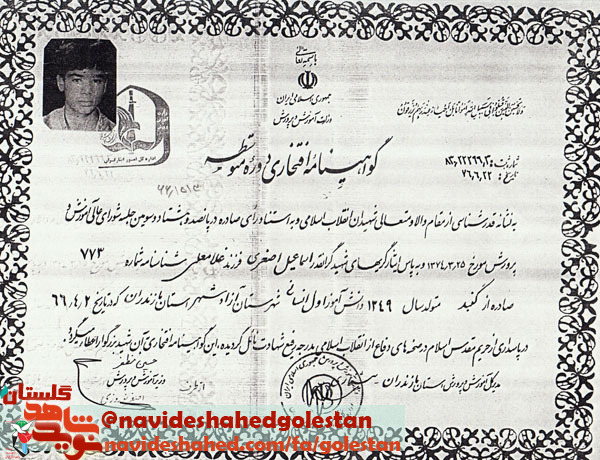 باسمه تعالی
جمهوری اسلامی ایران
وزارت آموزش و پرورش
شماره ثبت: ۸۳٫۲۲۲۶۶٫۳
تاریخ: ۷۶٫۶٫۲۲
گواهینامه افتخاری دوره متوسطه
به نشانه قدرشناسی از مقام والا و متعالی شهیدان انقلاب اسلامی و به استناد رای صادره در پانصد و هشتاد و سومین جلسه شورای عالی آموزش و
پرورش مورخ ۱۳۷۴٫۳٫۲۵ و به پاس ایثارگریهای شهید گرانقدر اسماعیل اصغری فرزند غلامعلی شناسنامه شماره ۷۷۳
صادره از گنبد متولد سال ۱۳۴۹ دانش آموز اول انسانی شهرستان آزادشهر استان مازندران که در تاریخ ۶۶٫۴٫۲
در پاسداری از حریم مقدس اسلام در صحنه های دفاع از انقلاب اسلامی به درجه رفیع شهادت نائل گردیده، این گواهینامه افتخاری آن شهید بزرگوار اعطا میگردد.
حسین مظفر
وزیر آموزش و پرورش
از طرف
مدیرکل آموزش و پرورش استان مازندران
گلستان
نوید شاهد
@navideshahedgolestan
navideshahed.com/fa/golestan